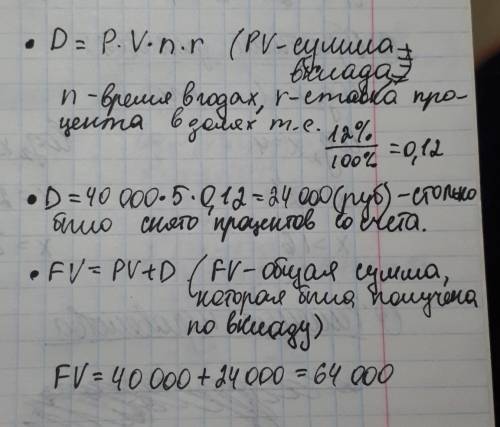 • D = P.V.n.r (PV-сумма
вклада)
n - время в годах, r - ставка про-
цента в долях т.е. 12%/100% = 0,12
• D = 40 000 • 5 • 0,12 = 24 000 (руб) - столько
было снято процентов со счета.
• FV = PV + D (FV - общая сумма,
которая была получена
по вкладу)
FV = 40 000 + 24 000 = 64 000